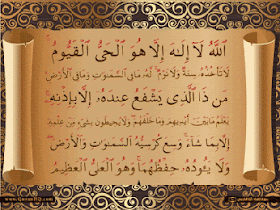 ٱللَّهُ لَآ إِلَٰهَ إِلَّا هُوَ ٱلْحَىُّ ٱلْقَيُّومُ ۚ
لَا تَأْخُذُهُۥ سِنَةٌ وَلَا نَوْمٌ ۚ لَّهُۥ مَا فِى ٱلسَّمَٰوَٰتِ وَمَا فِى ٱلْأَرْضِ ۗ
مَن ذَا ٱلَّذِى يَشْفَعُ عِندَهُۥٓ إِلَّا بِإِذْنِهِۦ ۚ
يَعْلَمُ مَا بَيْنَ أَيْدِيهِمْ وَمَا خَلْفَهُمْ ۖ وَلَا يُحِيطُونَ بِشَىْءٍ مِّنْ عِلْمِهِۦٓ
إِلَّا بِمَا شَآءَ ۚ وَسِعَ كُرْسِيُّهُ ٱلسَّمَٰوَٰتِ وَٱلْأَرْضَ ۖ
وَلَا يَـُٔودُهُۥ حِفْظُهُمَا ۚ وَهُوَ ٱلْعَلِىُّ ٱلْعَظِيمُ